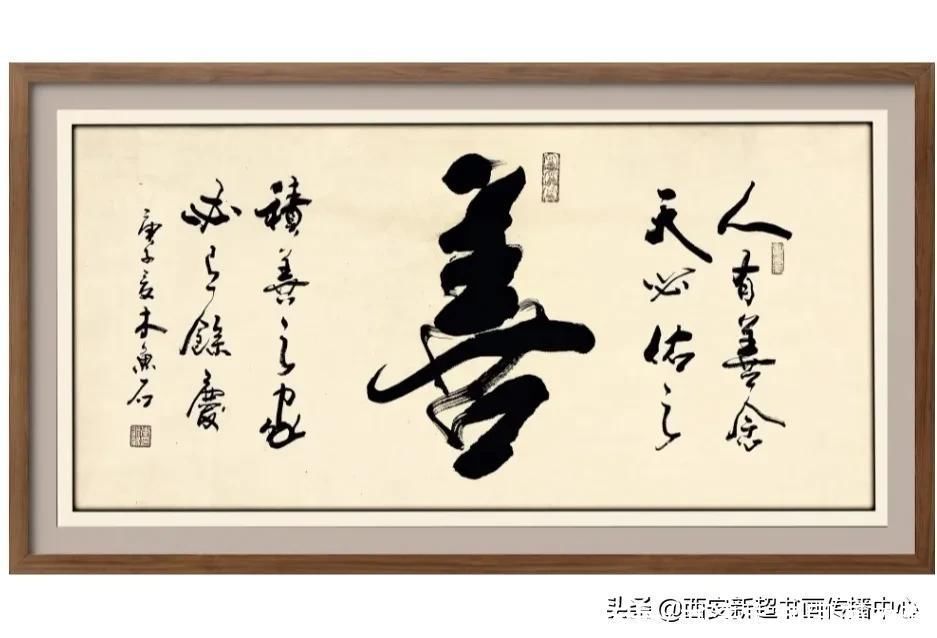 人有善念
天必佑之
善
積善之家
必有餘慶
庚子夏木魚石
头条 @西安新超书画传播中心